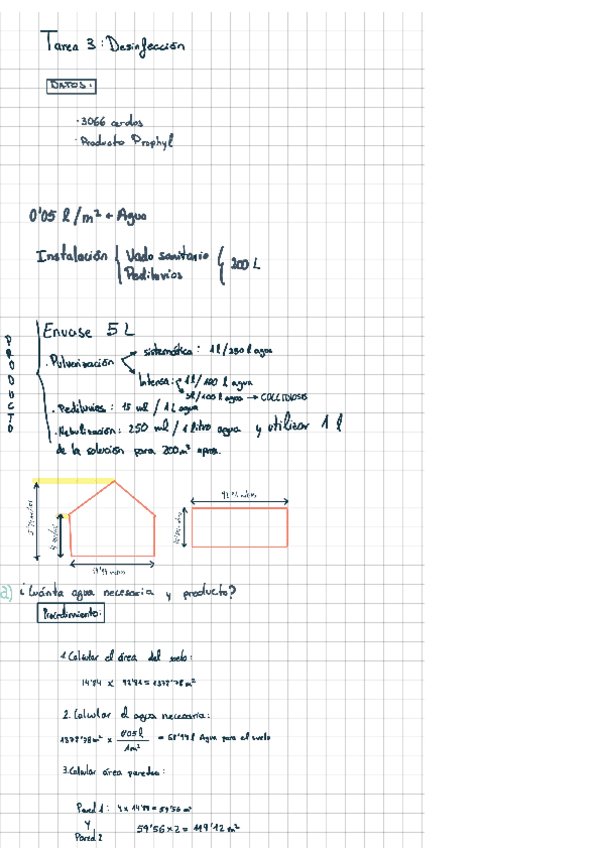 Tarea 3: Desinfección
DATOS:
· 3066 cerdos
· Producto Prophyl
0'05 l/m² + Agua
Instalación { Vado sanitario
Pediluvios { 200 L
PRODUCTO
Envase 5 L
· Pulverización
sistemática: 1l/250 l agua
Intensa: 1l/100 l agua
/100 l agua → COCCIDIOSIS
· Pediluvios: 15 ml / 1 L agua
· Nebulización: 250 ml / 1 litro agua y utilizar 1 l
de la solución para 200m³ aprox.
a) ¿Cuánta agua necesaria y producto?
Procedimiento:
1. Calcular el área del suelo:
2. Calcular el agua necesaria:
0'05 l
1m²
Agua para el suelo
3. Calcular área paredes:
Pared 1: = 59'56 m²
y
Pared 2
59'56 x 2 = 119'12 m²